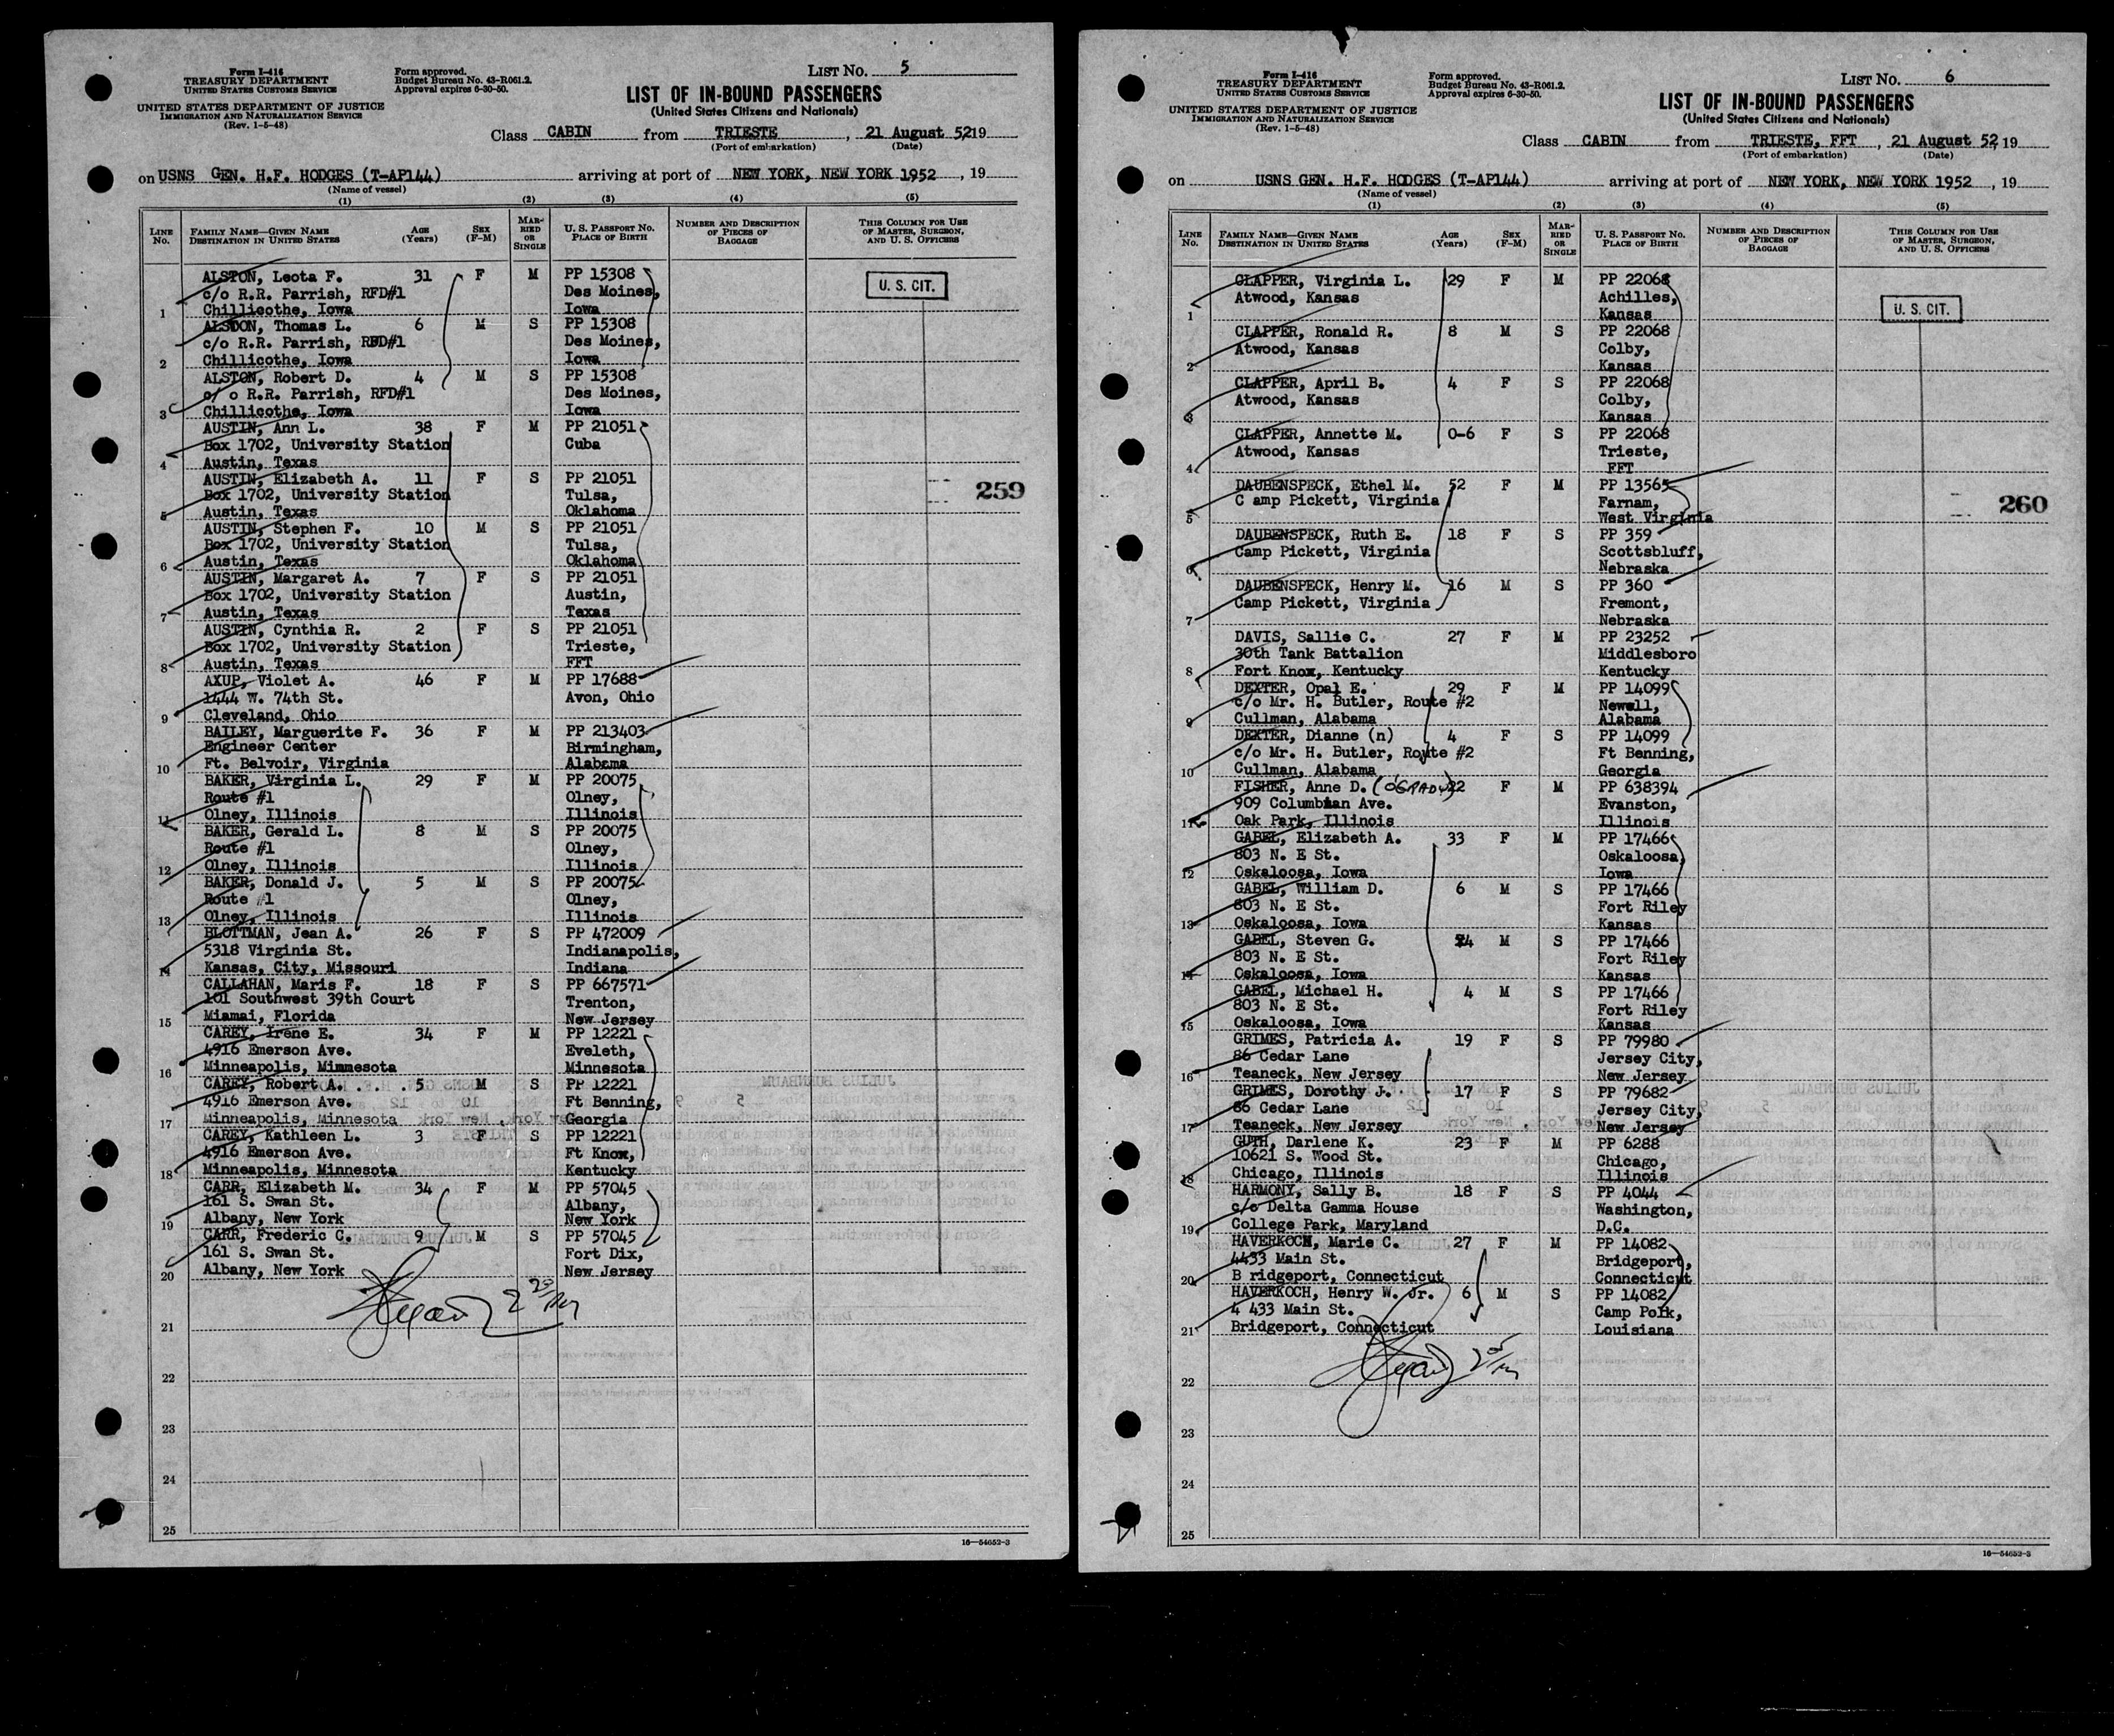 LIST NO. 5
Form I-416
TREASURY DEPARTMENT
UNITED STATES CUSTOMS SERVICE
Form approved.
Budget Bureau No. 43-R061.2.
Approval expires 6-30-50.
UNITED STATES DEPARTMENT OF JUSTICE
IMMIGRATION AND NATURALIZATION SERVICE
(Rev. 1-5-48)
LIST OF IN-BOUND PASSENGERS
(United States Citizens and Nationals)
Class CABIN from TRIESTE, 21 August 5219
(Port of embarkation) (Date)
on USNS GEN. H.F. HODGES (T-AP144) arriving at port of NEW YORK, NEW YORK 1952, 19
(Name of vessel)
(1) (2) (3) (4) (5)
LINE NO. FAMILY NAME—GIVEN NAME DESTINATION IN UNITED STATES AGE (Years) SEX (F-M) MARRIED OR SINGLE U. S. PASSPORT NO. PLACE OF BIRTH NUMBER AND DESCRIPTION OF PIECES OF BAGGAGE THIS COLUMN FOR USE OF MASTER, SURGEON, AND U. S. OFFICERS
ALSTON, Leota F. 31 F M PP 15308 U. S. CIT.
c/o R.R. Parrish, RFD#1 Des Moines,
1 Chillicothe, Iowa Iowa
ALSTON, Thomas L. 6 M S PP 15308
c/o R.R. Parrish, RFD#1 Des Moines,
2 Chillicothe, Iowa Iowa
ALSTON, Robert D. 4 M S PP 15308
c/ o R.R. Parrish, RFD#1 Des Moines,
3 Chillicothe, Iowa Iowa
AUSTIN, Ann L. 38 F M PP 21051
Box 1702, University Station Cuba
4 Austin, Texas
AUSTIN, Elizabeth A. 11 F S PP 21051
Box 1702, University Station Tulsa, 259
5 Austin, Texas Oklahoma
AUSTIN, Stephen F. 10 M S PP 21051
Box 1702, University Station Tulsa,
6 Austin, Texas Oklahoma
AUSTIN, Margaret A. 7 F S PP 21051
Box 1702, University Station Austin,
7 Austin, Texas Texas
AUSTIN, Cynthia R. 2 F S PP 21051
Box 1702, University Station Trieste,
8 Austin, Texas FFT
AXUP, Violet A. 46 F M PP 17688
1444 W. 74th St. Avon, Ohio
9 Cleveland, Ohio
BAILEY, Marguerite F. 36 F M PP 213403
Engineer Center Birmingham,
10 Ft. Belvoir, Virginia Alabama
BAKER, Virginia L. 29 F M PP 20075
Route #1 Olney,
11 Olney, Illinois Illinois
BAKER, Gerald L. 8 M S PP 20075
Route #1 Olney,
12 Olney, Illinois Illinois
BAKER, Donald J. 5 M S PP 20075
Route #1 Olney,
13 Olney, Illinois Illinois
BLOTTMAN, Jean A. 26 F S PP 472009
5318 Virginia St. Indianapolis,
14 Kansas, City, Missouri Indiana
CALLAHAN, Maris F. 18 F S PP 667571
101 Southwest 39th Court Trenton,
15 Miamai, Florida New Jersey
CAREY, Irene E. 34 F M PP 12221
4916 Emerson Ave. Eveleth,
16 Minneapolis, Minnesota Minnesota
CAREY, Robert A. 5 M S PP 12221
4916 Emerson Ave. Ft Benning,
17 Minneapolis, Minnesota Georgia
CAREY, Kathleen L. 3 F S PP 12221
4916 Emerson Ave. Ft Knox,
18 Minneapolis, Minnesota Kentucky
CARR, Elizabeth M. 34 F M PP 57045
161 S. Swan St. Albany,
19 Albany, New York New York
CARR, Frederic C. 9 M S PP 57045
161 S. Swan St. Fort Dix,
20 Albany, New York New Jersey
21
22
23
24
25
16—54652-3
LIST NO. 6
Form I-416
TREASURY DEPARTMENT
UNITED STATES CUSTOMS SERVICE
Form approved.
Budget Bureau No. 43-R061.2.
Approval expires 6-30-50.
UNITED STATES DEPARTMENT OF JUSTICE
IMMIGRATION AND NATURALIZATION SERVICE
(Rev. 1-5-48)
LIST OF IN-BOUND PASSENGERS
(United States Citizens and Nationals)
Class CABIN from TRIESTE, FFT, 21 August 52, 19
(Port of embarkation) (Date)
on USNS GEN. H.F. HODGES (T-AP144) arriving at port of NEW YORK, NEW YORK 1952, 19
(Name of vessel)
(1) (2) (3) (4) (5)
LINE NO. FAMILY NAME—GIVEN NAME DESTINATION IN UNITED STATES AGE (Years) SEX (F-M) MARRIED OR SINGLE U. S. PASSPORT NO. PLACE OF BIRTH NUMBER AND DESCRIPTION OF PIECES OF BAGGAGE THIS COLUMN FOR USE OF MASTER, SURGEON, AND U. S. OFFICERS
CLAPPER, Virginia L. 29 F M PP 22068
Atwood, Kansas Achilles, U. S. CIT.
1 Kansas
CLAPPER, Ronald R. 8 M S PP 22068
Atwood, Kansas Colby,
2 Kansas
CLAPPER, April B. 4 F S PP 22068
Atwood, Kansas Colby,
3 Kansas
CLAPPER, Annette M. 0-6 F S PP 22068
Atwood, Kansas Trieste,
4 FFT
DAUBENSPECK, Ethel M. 52 F M PP 13565
C amp Pickett, Virginia Farnam, 260
5 West Virginia
DAUBENSPECK, Ruth E. 18 F S PP 359
Camp Pickett, Virginia Scottsbluff,
6 Nebraska
DAUBENSPECK, Henry M. 16 M S PP 360
Camp Pickett, Virginia Fremont,
7 Nebraska
DAVIS, Sallie C. 27 F M PP 23252
30th Tank Battalion Middlesboro
8 Fort Knox, Kentucky Kentucky
DEXTER, Opal E. 29 F M PP 14099
c/o Mr. H. Butler, Route #2 Newell,
9 Cullman, Alabama Alabama
DEXTER, Dianne (n) 4 F S PP 14099
c/o Mr. H. Butler, Route #2 Ft Benning,
10 Cullman, Alabama Georgia
FISHER, Anne D. (O'GRADY) 22 F M PP 638394
909 Columbian Ave. Evanston,
11 Oak Park, Illinois Illinois
GABEL, Elizabeth A. 33 F M PP 17466
803 N. E St. Oskaloosa,
12 Oskaloosa, Iowa Iowa
GABEL, William D. 6 M S PP 17466
803 N. E St. Fort Riley
13 Oskaloosa, Iowa Kansas
GABEL, Steven G. 4 M S PP 17466
803 N. E St. Fort Riley
14 Oskaloosa, Iowa Kansas
GABEL, Michael H. 4 M S PP 17466
803 N. E St. Fort Riley
15 Oskaloosa, Iowa Kansas
GRIMES, Patricia A. 19 F S PP 79980
86 Cedar Lane Jersey City,
16 Teaneck, New Jersey New Jersey
GRIMES, Dorothy J. 17 F S PP 79682
86 Cedar Lane Jersey City,
17 Teaneck, New Jersey New Jersey
GUTH, Darlene K. 23 F M PP 6288
10621 S. Wood St. Chicago,
18 Chicago, Illinois Illinois
HARMONY, Sally B. 18 F S PP 4044
c/o Delta Gamma House Washington,
19 College Park, Maryland D.C.
HAVERKOCH, Marie C. 27 F M PP 14082
4433 Main St. Bridgeport,
20 B ridgeport, Connecticut Connecticut
HAVERKOCH, Henry W. Jr. 6 M S PP 14082
4 433 Main St. Camp Polk,
21 Bridgeport, Connecticut Louisiana
22
23
24
25
16—54652-3